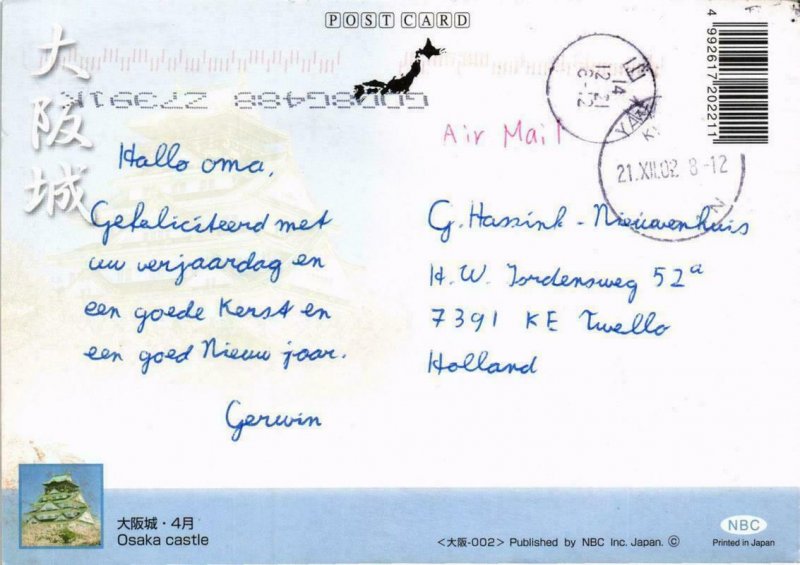 POST CARD
4 992617 202211
大阪城
Air Mail
21.XII.02 8-12
Hallo oma,
Gefeliciteerd met
uw verjaardag en
een goede Kerst en
een goed Nieuw jaar.
Gerwin
G. Hassink - Nieuwenhuis
H.W. Iordensweg 52a
7391 KE Twello
Holland
大阪城・4月
Osaka castle
<大阪-002> Published by NBC Inc. Japan. ©
NBC
Printed in Japan